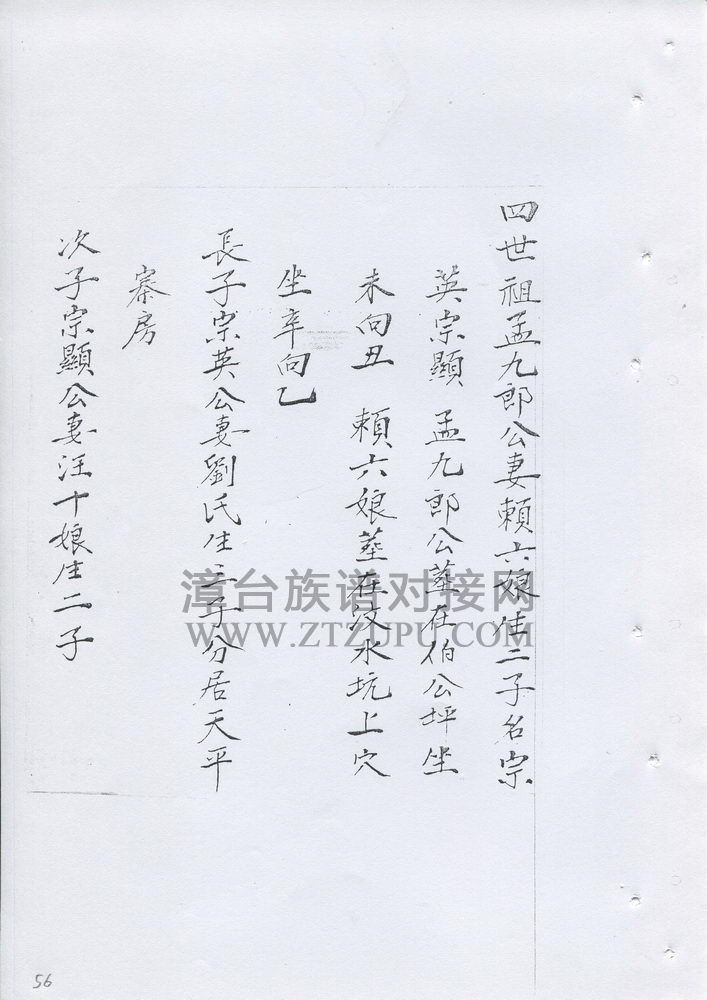 四世祖孟九郎公妻賴六娘生二子名宗
英宗顯 孟九郎公墓在伯公坪坐
未向丑 賴六娘墓在汶水坑上穴
坐辛向乙
長子宗英公妻劉氏生三子分居天平
寨房
次子宗顯公妻汪十娘生二子
漳台族谱对接网
WWW.ZTZUPU.COM
56